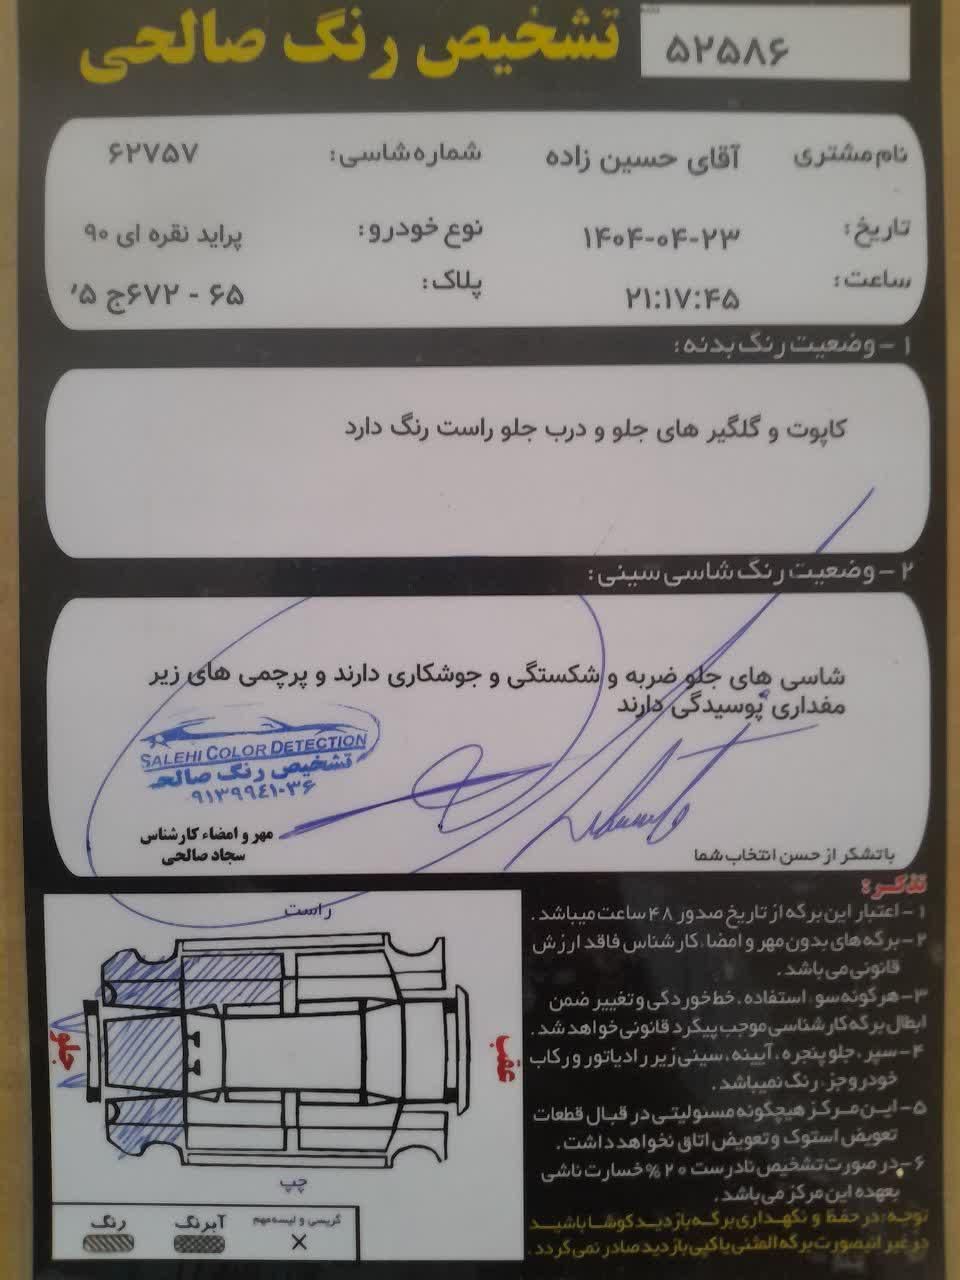 تشخیص رنگ صالحی
۵۲۵۸۶
نام مشتری آقای حسین زاده شماره شاسی: ۶۲۷۵۷
تاریخ: ۱۴۰۴-۰۴-۲۳ نوع خودرو: پراید نقره ای ۹۰
ساعت: ۲۱:۱۷:۴۵ پلاک: ۶۵ - ۶۷۲ج ۵
۱ - وضعیت رنگ بدنه:
کاپوت و گلگیر های جلو و درب جلو راست رنگ دارد
۲ - وضعیت رنگ شاسی سینی:
شاسی های جلو ضربه و شکستگی و جوشکاری دارند و پرچمی های زیر
مقداری پوسیدگی دارند
SALEHI COLOR DETECTION
تشخیص رنگ صالحی
۹۱۳۹۹٤۱۰۳۶
مهر و امضاء کارشناس
سجاد صالحی
باتشکر از حسن انتخاب شما
تذکر:
۱- اعتبار این برگه از تاریخ صدور ۴۸ ساعت میباشد.
۲- برگه های بدون مهر و امضاء کارشناس فاقد ارزش
قانونی می باشد.
۳- هرگونه سوء استفاده، خط خوردگی و تغییر ضمن
ابطال برگه کارشناسی موجب پیگرد قانونی خواهد شد.
۴- سپر، جلو پنجره، آیینه، سینی زیر رادیاتور و رکاب
خودرو جزء رنگ نمیباشد.
۵- این مرکز هیچگونه مسئولیتی در قبال قطعات
تعویض استوک و تعویض اتاق نخواهد داشت.
۶- در صورت تشخیص نادرست ۲۰% خسارت ناشی
بعهده این مرکز می باشد.
توجه: در حفظ و نگهداری برگه بازدید کوشا باشید
در غیر اینصورت برگه المثنی یا کپی بازدید صادر نمی گردد.
راست
جلو
عقب
چپ
رنگ
آبرنگ
گریسی و لیسه مهم